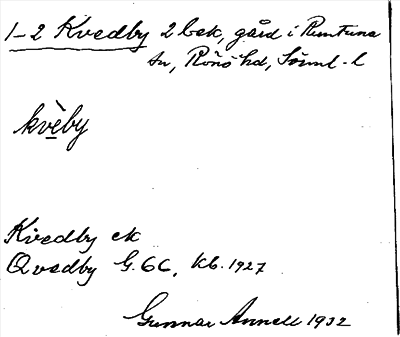 1-2 Kvedby 2 bek, gård i Runtuna
sn, Rönö hd, Sörml. l
kvèby
Kvedby ek
Qvedby G. 66, kb. 1927
Gunnar Annell 1932